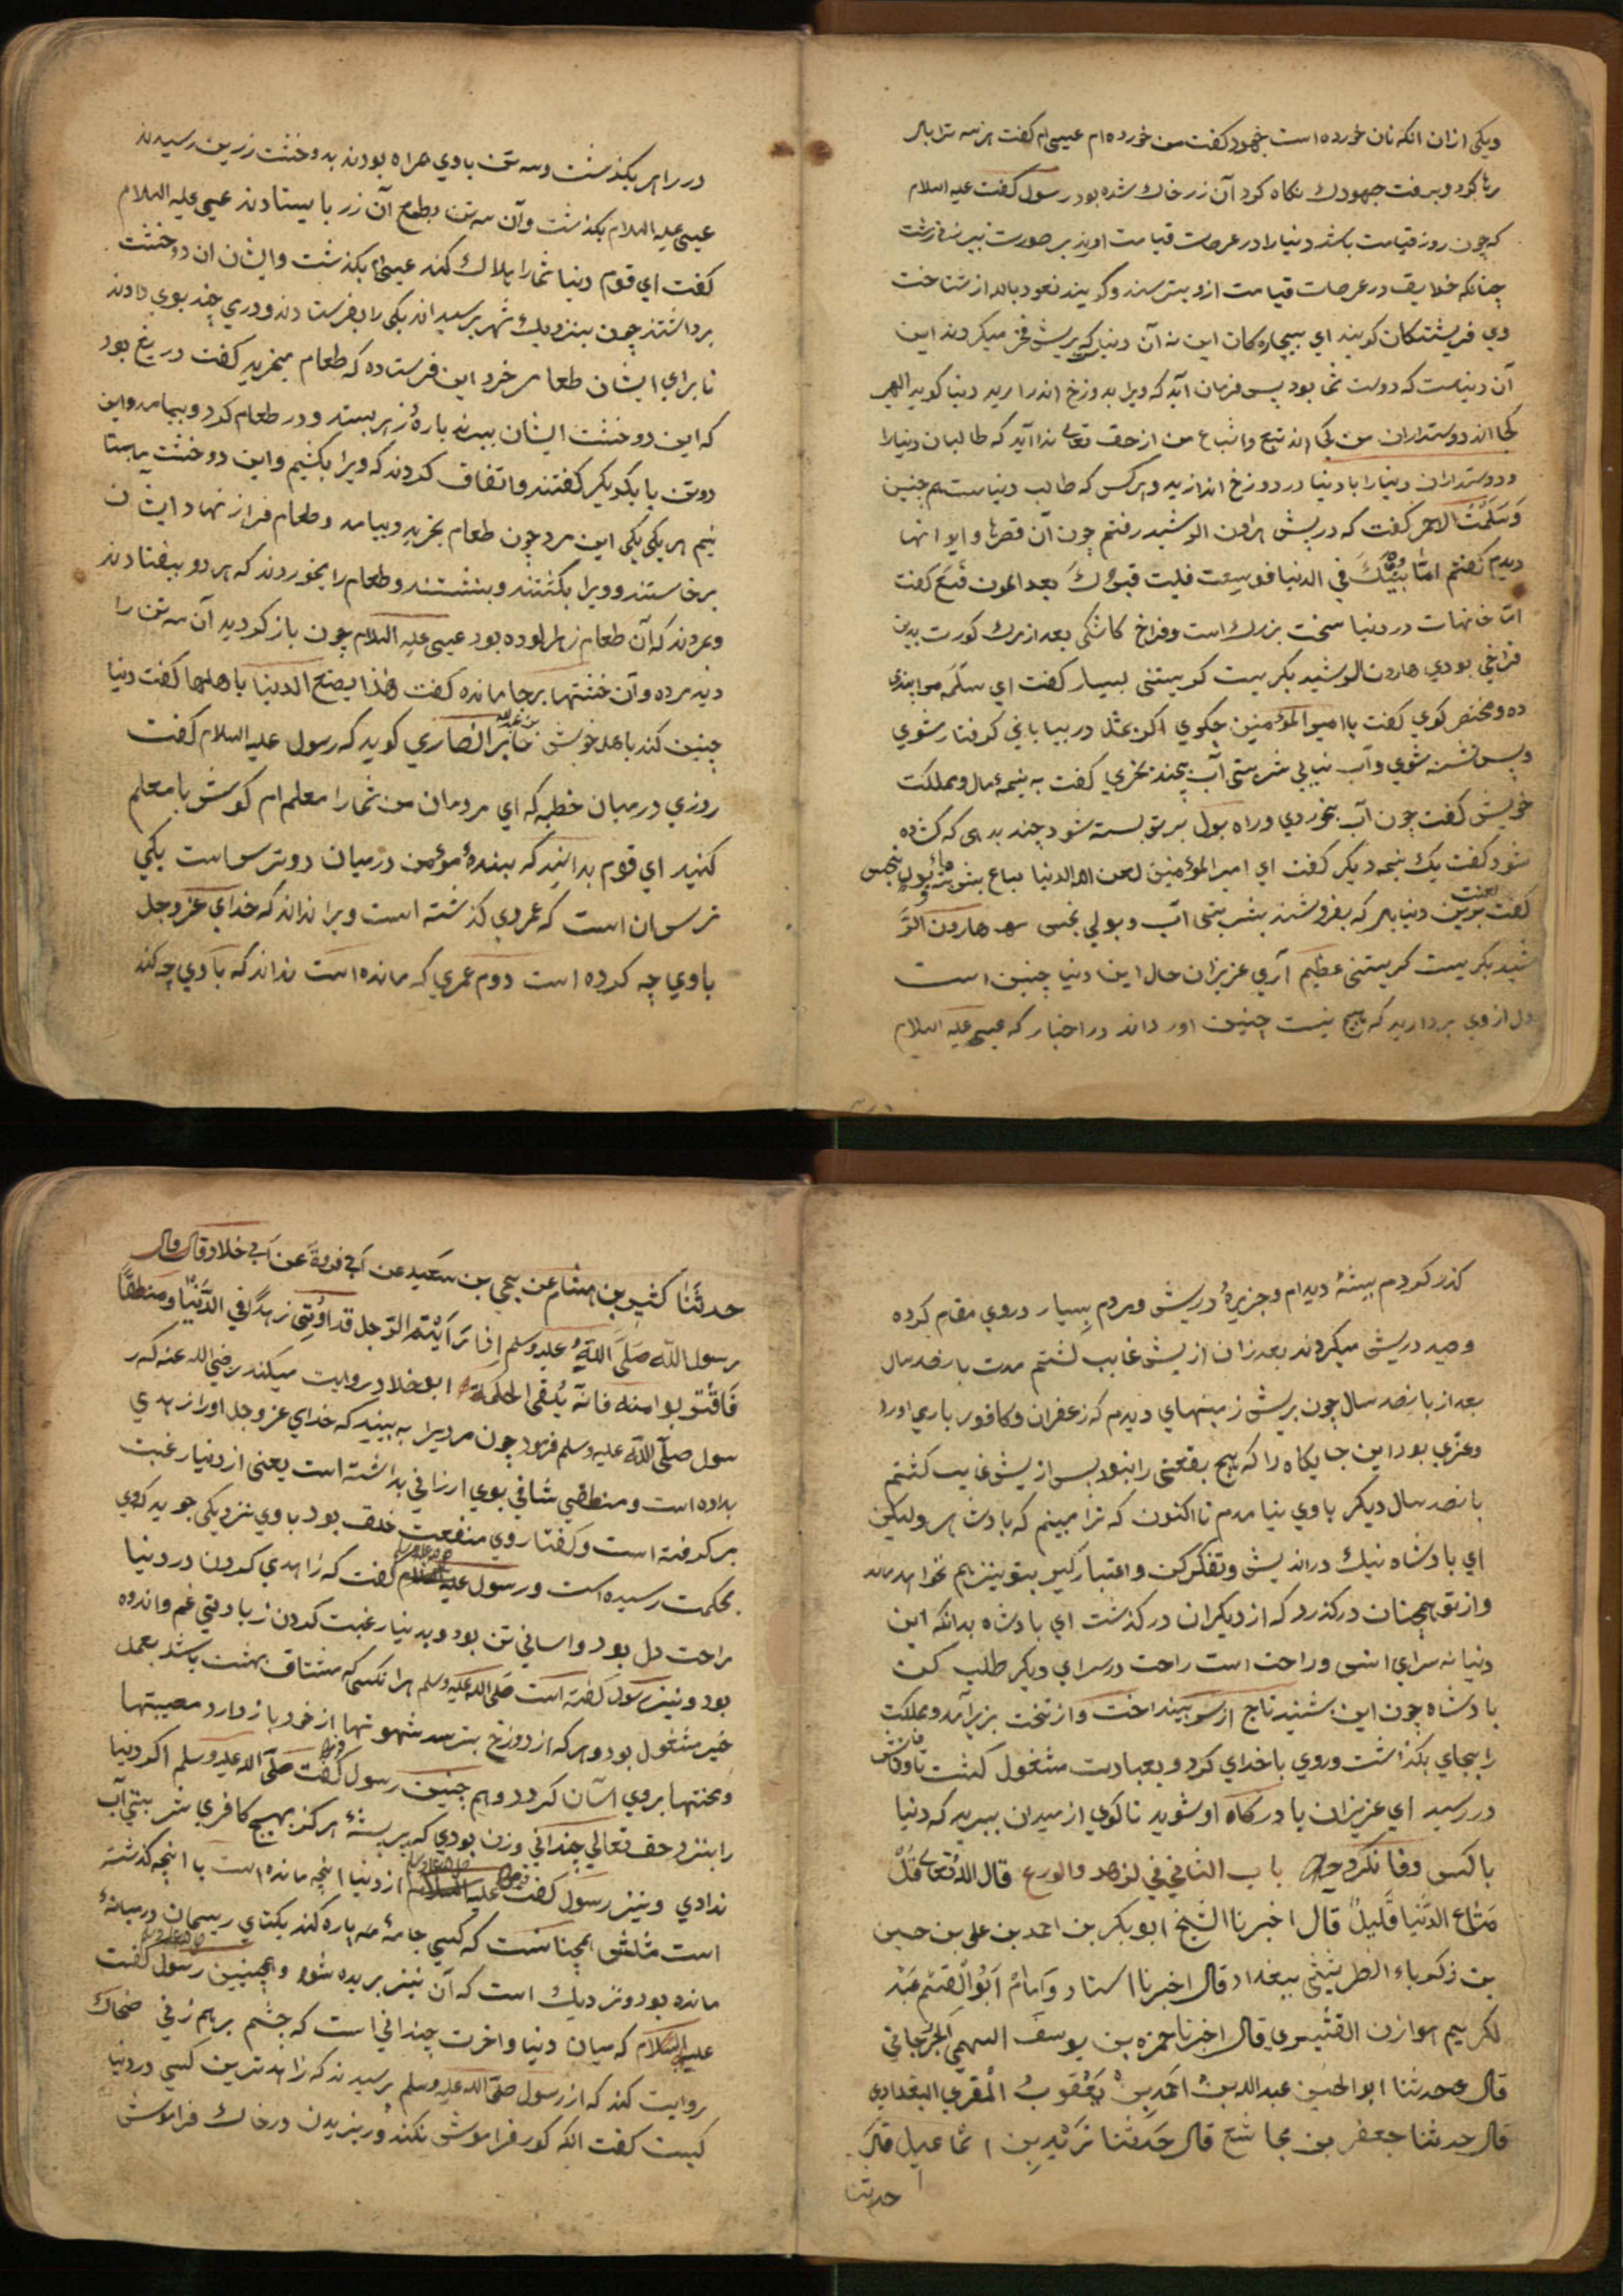 ویکی ازان انکه نان خورده است جهود کفت من خورده ام عیسی ام کفت هر سه ترا باد
رها کرد و برفت جهودک نکاه کرد آن زر خاک شده بود رسول کفت علیه السلام
که چون روز قیامت باشد دنیا را در عرصات قیامت اورند بر صورت پیر زنی زشت
چنانکه خلایق در عرصات قیامت ازو بترسند و کویند نعوذ بالله از شناخت
وی فریشتکان کویند ای بیچارکان این نه آن دنیا که بریش فخر میکردند این
آن دنیاست که دوست شما بود پس فرمان آید که ویرا بدوزخ اندر ارید دنیا کوید الهی
کجا اند دوستداران من کجا اند تبع واشباع من از حق تعالی ندا آید که طالبان دنیا را
ودوستداران دنیا را با دنیا در دوزخ اندازید وهر کس که طالب دنیاست هم چنین
وسلمة الاحمر کفت که در پیش هارون الرشید رفتم چون آن قصرها وایوانها
دیدم کفتم اما بیتک فی الدنیا فوسیعت فلیت قبرک بعد الموت فتسع کفت
اما خانهات در دنیا سخت بزرک است وفراخ کاشکی بعد از مرک کورت بدین
فراخی بودی هارون الرشید بکریست کریستنی بسیار کفت ای سلمه مرا پندی
ده ومختصر کوی کفت یا امیر المؤمنین چکوی اکر بمثل در بیابانی کرفتار شوی
وپس تشنه شوی وآب نیابی شربتی آب بچند بخری کفت به نیمهٔ مال ومملکت
خویش کفت چون آب بخوردی وراه بول بر تو بسته شود چند بدهی که کشاده
شود کفت یک نیمه دیکر کفت ای امیر المؤمنین لعن الله الدنیا یباع بشربة ماء وبول نجس
کفت لعنت برین دنیا باد که بفروشند بشربتی آب وبولی نجس هارون الر
شید بکریست کریستنی عظیم آری عزیزان حال این دنیا چنین است
دل از وی بردارید که هیچ نیست چنین اورداند در اخبار که عیسی علیه السلام
در راهی بکذشت وسه تن با وی همراه بودند به دو خشت زرین رسیدند
عیسی علیه السلام بکذشت وآن سه تن بطمع آن زر بایستادند عیسی علیه السلام
کفت ای قوم دنیا شما را هلاک کند عیسی بکذشت وایشان ان دو خشت
برداشتند چون بنزدیک شهر برسیدند یکی را بفرستادند ودرمی چند بوی دادند
تا برای ایشان طعام خرد این فرستاده که طعام میخرید کفت دریغ بود
که این دو خشت ایشان ببرند پارهٔ زهر بستد و در طعام کرد وبیامد واین
دو تن با یکدیکر کفتند واتفاق کردند که ویرا بکشیم واین دو خشت بستا
نیم هر یکی یکی این مرد چون طعام بخرید وبیامد وطعام فراز نهاد ایشان
برخاستند وویرا بکشتند وبنشستند وطعام را بخوردند که هر دو بیفتادند
وبمردند که آن طعام زهرالوده بود عیسی علیه السلام چون باز کردید آن سه تن را
دید مرده وآن خشتها بر جا مانده کفت هذا یصنع الدنیا باهلها کفت دنیا
چنین کند با اهل خویش جابر بن عبد الله انصاری کوید که رسول علیه السلام کفت
روزی در میان خطبه که ای مردمان من شما را معلم ام کوش با معلم
کنید ای قوم بدانید که بندهٔ مؤمن در میان دو ترس است یکی
ترسان است که عمروی کذشته است ویرا نداند که خدای عز وجل
با وی چه کرده است دوم عمری که مانده است نداند که با وی چه کند
کذر کردم بیشهٔ دیدم وجزیرهٔ در پیش ومردم بسیار در وی مقام کرده
وصید در پیش میکردند بعد زان از پیش غایب کشتم مدت پانصد سال
بعد از پانصد سال چون بریش زمینهای دیدم که زعفران وکافور باری اورد
وعزی بود این جایکاه را که هیچ بقعتی را نبود پس از پیش غایب کشتم
پانصد سال دیکر با وی نیامدم تا اکنون که ترا میبینم که پادشاهی ولیکن
ای پادشاه نیک در اندیش وتفکر کن واعتبار کیر بتو نیز هم نخواهد ماند
واز تو همچنان در کذرد که از دیکران در کذشت ای پادشاه بدانکه این
دنیا نه سرای انس وراحت است راحت در سرای دیکر طلب کن
پادشاه چون این بشنید تاج از سر بینداخت واز تخت بزیر آمد ومملکت
را بجای بکذاشت وروی با خدای کرد وبعبادت مشغول کشت تا وفاتش
در رسید ای عزیزان با درکاه او شوید تا کوی از میدان ببرید که دنیا
با کس وفا نکرد باب الثانی فی الزهد والورع قال الله تعالی قل
متاع الدنیا قلیل قال اخبرنا الشیخ ابو بکر بن احمد بن علی بن حسین
بن زکریاء الطریثیثی ببغداد قال اخبرنا استاد وامام ابو القسم عبد
الکریم هوازن القشیری قال اخبرنا حمزه بن یوسف السهمی الجرجانی
قال حدثنا ابو الحسن عبد الله بن احمد بن یعقوب المقری البغدادی
قال حدثنا جعفر بن مجاشع قال حدثنا زید بن اسماعیل قال
حدثنا
حدثنا کثیر بن هشام عن یحیی بن سعید عن ابی فروة عن ابی خلاد قال قال
رسول الله صلی الله علیه وسلم اذا رایتم الرجل قد اوتی زهدا فی الدنیا ومنطقا
فاقتربوا منه فانه یلقی الحکمة ابو خلاد روایت میکند رضی الله عنه که ر
سول صلی الله علیه وسلم فرمود چون مردیرا به بینید که خدای عز وجل او را زهدی
بداده است ومنطقی شافی بوی ارزانی بداشته است یعنی از دنیا رغبت
بر کرفته است وکفتار وی منفعت خلق بود با وی نزدیکی جوید که وی
بحکمت رسیده است ورسول علیه السلام کفت که زاهدی کردن در دنیا
راحت دل بود واسانی تن بود وبدنیا رغبت کردن زیادتی غم واندوه
بود ونیز رسول کفته است صلی الله علیه وسلم هر انکسی که مشتاق بهشت باشد بعمل
خیر مشغول بود وهر که از دوزخ بترسد شهوتها از خود باز دارد ومصیبتها
ومحنتها بر وی آسان کردد وهم چنین رسول کفت صلی الله علیه وسلم اکر دنیا
را بنزد حق تعالی چندانی وزن بودی که پر پشهٔ هرکز هیچ کافری شربتی آب
ندادی ونیز رسول کفت علیه السلام از دنیا انچه مانده است با انچه کذشته
است مثلش همچنانست که کسی جامهٔ پاره کند یکتای ریسمان در میانهٔ
مانده بود ونزدیک است که آن نیز بریده شود وهمچنین رسول کفت
علیه السلام که میان دنیا واخرت چندانی است که چشم بر هم زنی ضحاک
روایت کند که از رسول صلی الله علیه وسلم پرسیدند که زاهدترین کسی در دنیا
کیست کفت انکه کور فراموش نکند وریزیدن در خاک فراموش